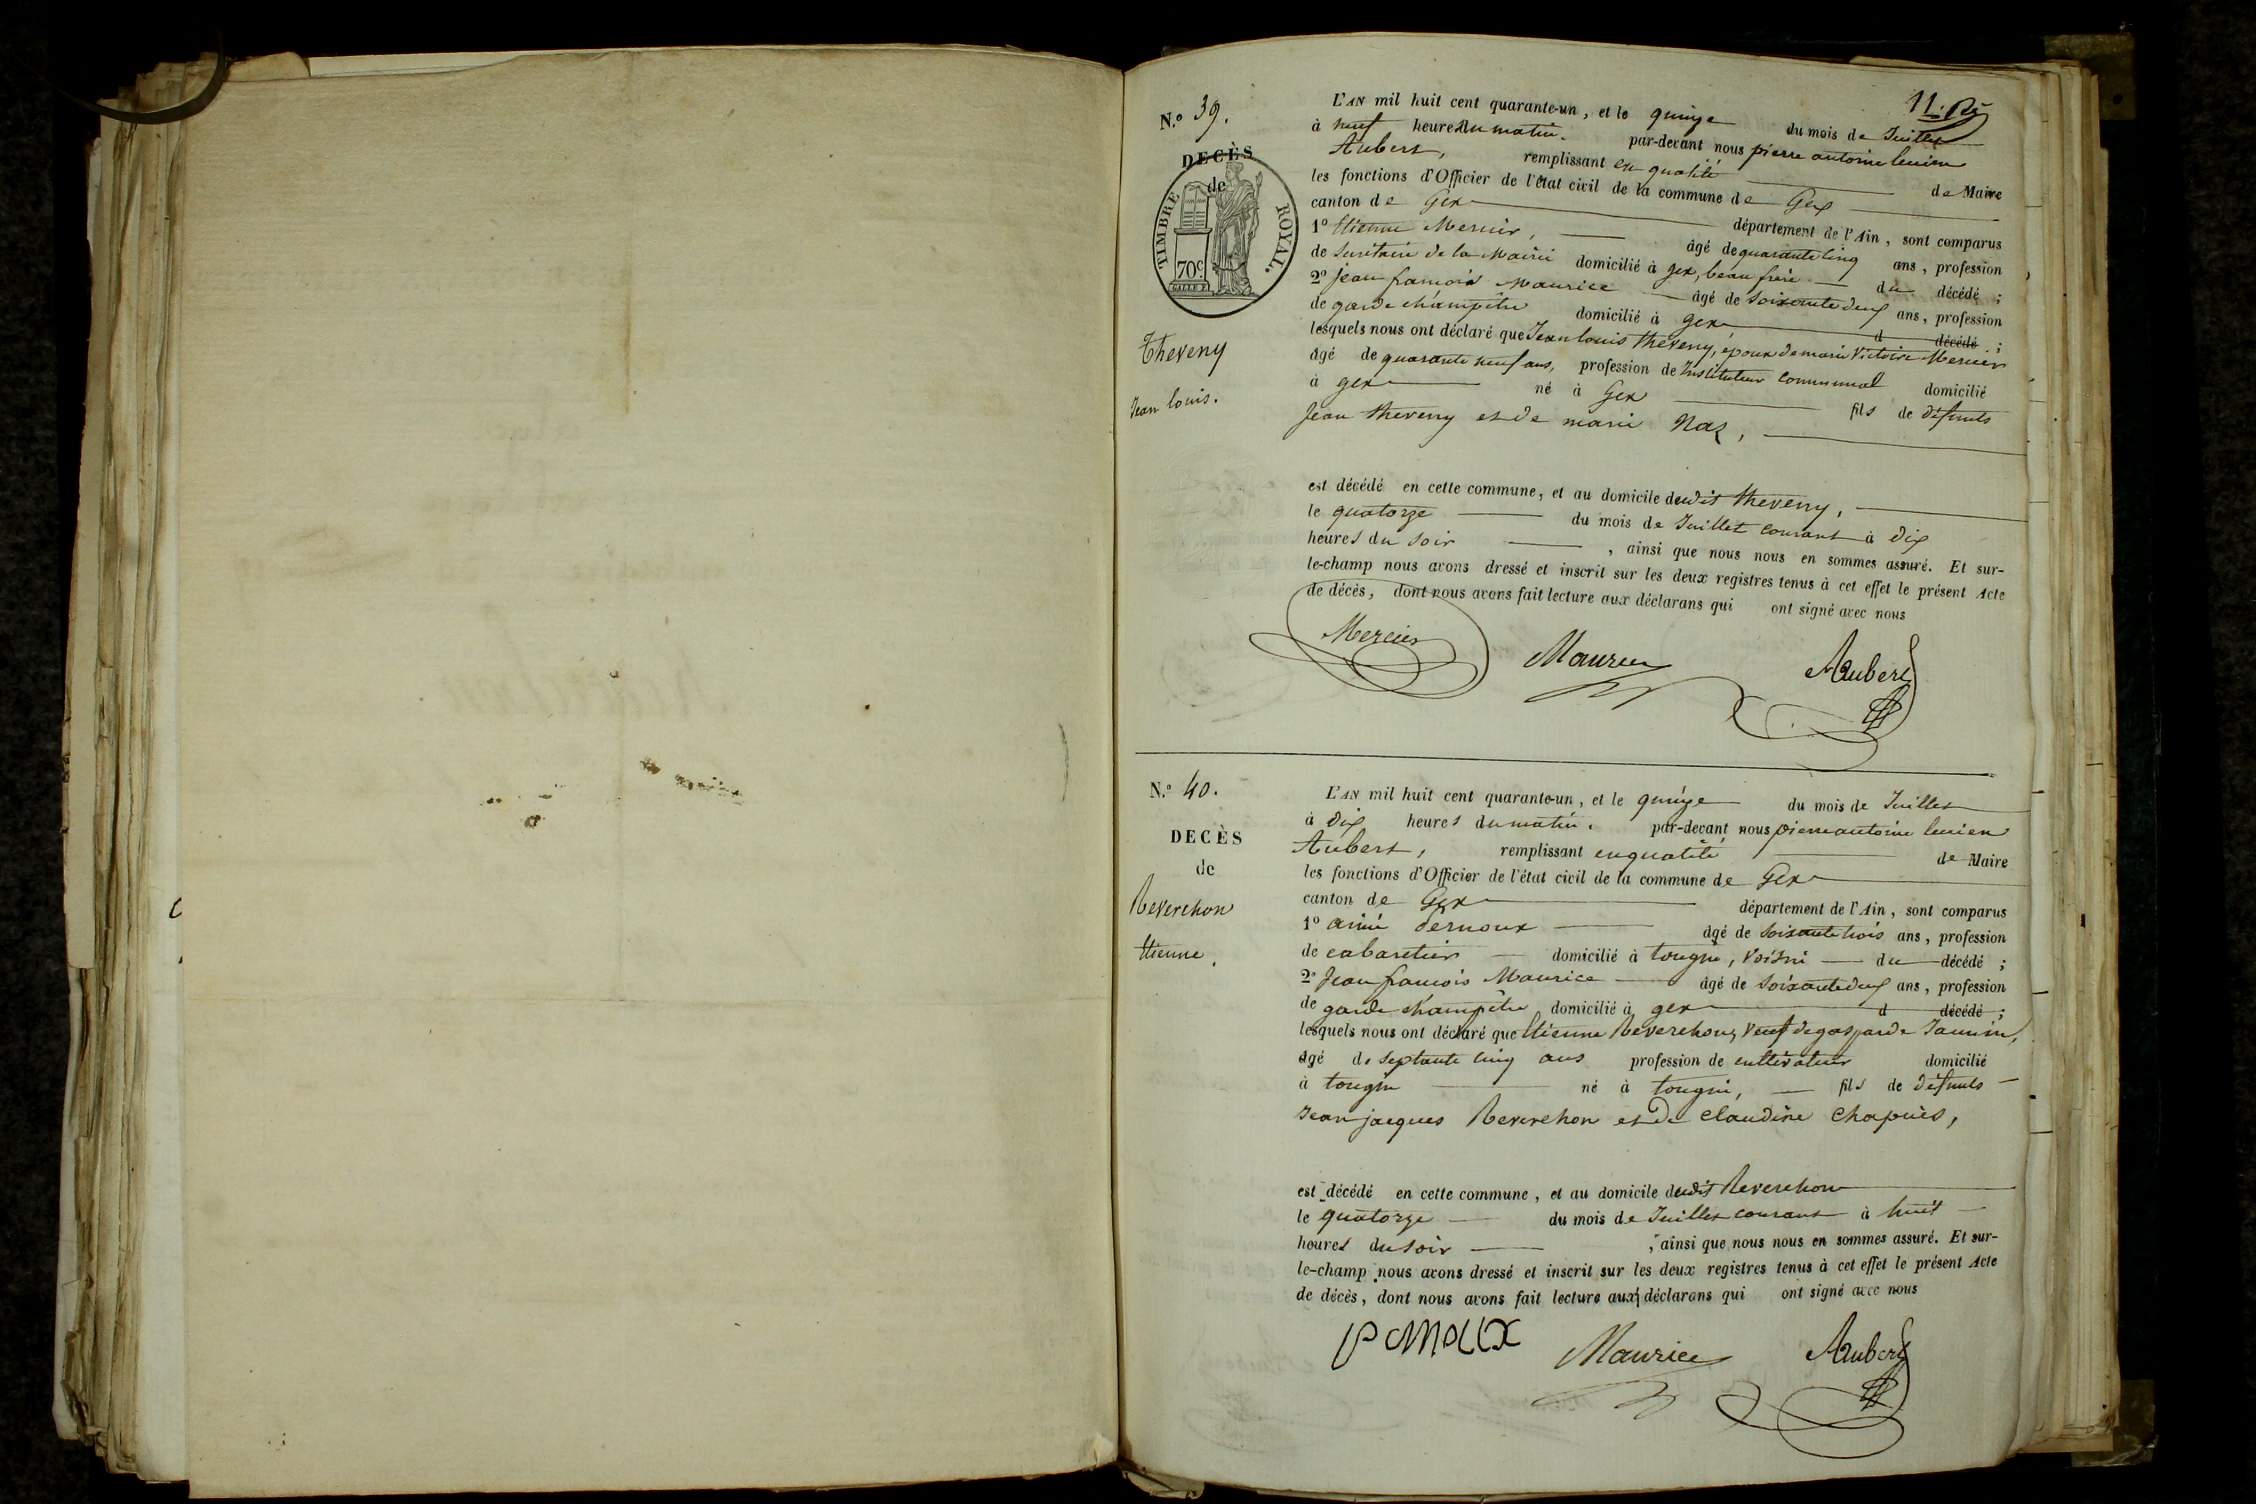 11.
N.º 39.
DECÈS
de
TIMBRE ROYAL.
70c
Theveny
Jean louis.
L'AN mil huit cent quarante-un, et le quinze du mois de Juillet
à neuf heures du matin. par-devant nous pierre antoine lucien
Aubert, remplissant en qualité de Maire
les fonctions d'Officier de l'état civil de la commune de Gex
canton de Gex département de l'Ain, sont comparus
1º Etienne Mercier, âgé de quarante cinq ans, profession
de Secrétaire de la Mairie domicilié à gex, beau frère du décédé ;
2º Jean françois Maurice âgé de soixante deux ans, profession
de garde champêtre domicilié à gex d décédé ;
lesquels nous ont déclaré que Jean louis theveny, époux de marie Victoire Mercier
âgé de quarante neuf ans, profession de Instituteur communal domicilié
à gex né à Gex fils de défunts
Jean theveny et de marie Naz,
est décédé en cette commune, et au domicile dudit theveny,
le quatorze du mois de Juillet courant à dix
heures du soir , ainsi que nous nous en sommes assuré. Et sur-
le-champ nous avons dressé et inscrit sur les deux registres tenus à cet effet le présent Acte
de décès, dont nous avons fait lecture aux déclarans qui ont signé avec nous
Mercier Maurice Aubert
N.º 40.
DECÈS
de
Reverchon
Etienne.
L'AN mil huit cent quarante-un, et le quinze du mois de Juillet
à dix heures du matin. par-devant nous pierre antoine lucien
Aubert, remplissant en qualité de Maire
les fonctions d'Officier de l'état civil de la commune de Gex
canton de Gex département de l'Ain, sont comparus
1º aimé dernoux âgé de soixante trois ans, profession
de cabaretier domicilié à tougin, voisin du décédé ;
2º Jean françois Maurice âgé de soixante deux ans, profession
de garde champêtre domicilié à gex d décédé ;
lesquels nous ont déclaré que Etienne Reverchon, veuf de gasparde Jannin,
âgé de septante cinq ans profession de cultivateur domicilié
à tougin né à tougin, fils de défunts
Jean jacques Reverchon et de Claudine Chapuis,
est décédé en cette commune, et au domicile dudit Reverchon
le quatorze du mois de Juillet courant à huit
heures du soir , ainsi que nous nous en sommes assuré. Et sur-
le-champ nous avons dressé et inscrit sur les deux registres tenus à cet effet le présent Acte
de décès, dont nous avons fait lecture aux déclarans qui ont signé avec nous
Maurice Aubert